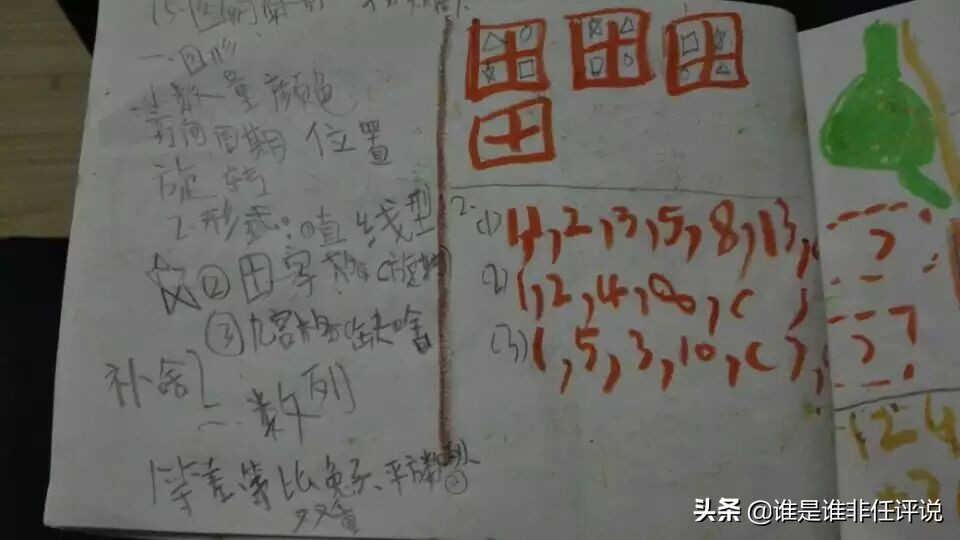 15.图
一.图
1.数量 颜色
方向 周期 位置
旋转
2.形式:①直线型
②田字格(旋转)
③九宫格(缺啥
补啥)
二.数列
1.等差、等比、兔子、平方数列
双重
2.
(1) 1,2,3,5,8,13,( )
(2) 1,2,4,8,( )
(3) 1,5,3,10,( ),( )
头条 @谁是谁非任评说